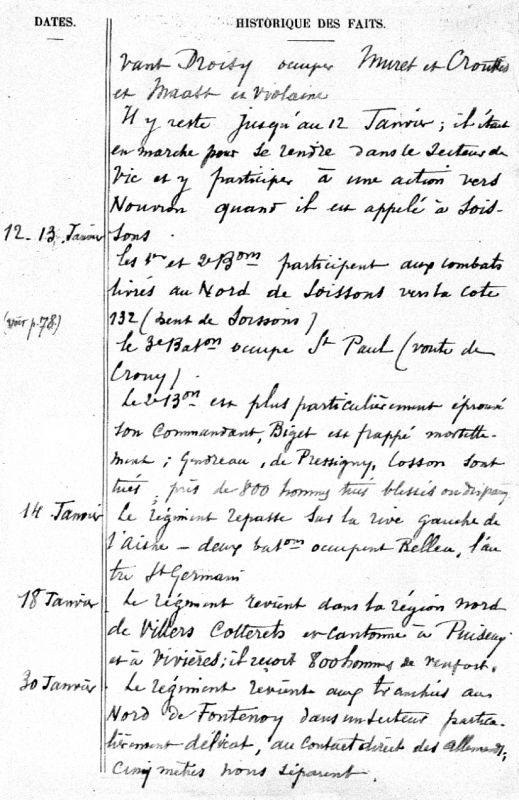 DATES.
HISTORIQUE DES FAITS.
vant Droisy occuper Muret et Crouttes
et Maast et Violaine
Il y reste jusqu'au 12 Janvier ; il était
en marche pour se rendre dans le secteur de
Vic et y participer à une action vers
Nouvron quand il est appelé à Sois-
12 - 13 Janvier
sons.
Les 1er et 2e Bons participent aux combats
livrés au Nord de Soissons vers la cote
(voir p. 78)
132 (dent de Soissons)
Le 3e Baton occupe St Paul (route de
Crouy)
Le 2e Bon est plus particulièrement éprouvé
son Commandant, Biget est frappé mortelle-
ment ; Gendreau, de Pressigny, Cosson sont
tués, près de 800 hommes tués blessés ou disparus
14 Janvier
Le régiment repasse sur la rive gauche de
l'Aisne - deux batons occupent Belleu, l'au
tre St Germain
18 Janvier
Le régiment revient dans la région nord
de Villers Cotterets et cantonne à Puiseux
et à Vivières ; il reçoit 800 hommes de renfort.
30 Janvier
Le régiment revient aux tranchées au
Nord de Fontenoy dans un secteur particu-
lièrement délicat, au contact direct des allemands,
Cinq mètres nous séparent.